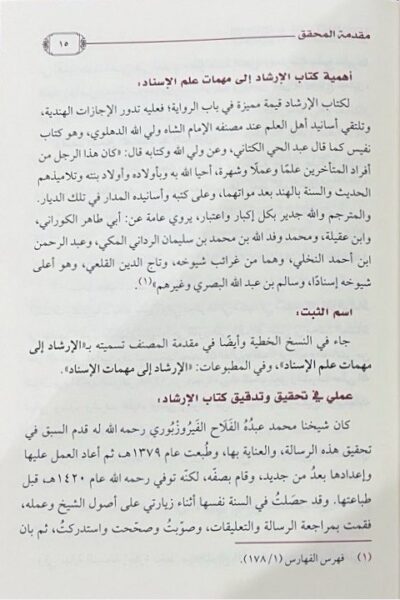 مقدمة المحقق
١٥
أهمية كتاب الإرشاد إلى مهمات علم الإسناد:
لكتاب الإرشاد قيمة مميزة في باب الرواية؛ فعليه تدور الإجازات الهندية،
وتلتقي أسانيد أهل العلم عند مصنفه الإمام الشاه ولي الله الدهلوي، وهو كتاب
نفيس كما قال عبد الحي الكتاني، وعن ولي الله وكتابه قال: «كان هذا الرجل من
أفراد المتأخرين علمًا وعملًا وشهرة، أحيا الله به وبأولاده وأولاد بنته وتلاميذهم
الحديث والسنة بالهند بعد مواتهما، وعلى كتبه وأسانيده المدار في تلك الديار.
والمترجم والله جدير بكل إكبار واعتبار، يروي عامة عن: أبي طاهر الكوراني،
وابن عقيلة، ومحمد وفد الله بن محمد بن سليمان الرداني المكي، وعبد الرحمن
ابن أحمد النخلي، وهما من غرائب شيوخه، وتاج الدين القلعي، وهو أعلى
شيوخه إسنادًا، وسالم بن عبد الله البصري وغيرهم»(١).
اسم الثبت:
جاء في النسخ الخطية وأيضًا في مقدمة المصنف تسميته بـ«الإرشاد إلى
مهمات علم الإسناد»، وفي المطبوعات: «الإرشاد إلى مهمات الإسناد».
عملي في تحقيق وتدقيق كتاب الإرشاد:
كان شيخنا محمد عبدُهُ الفَلَاح الفَيروزْبُوري رحمه الله له قدم السبق في
تحقيق هذه الرسالة، والعناية بها، وطُبعت عام ١٣٧٩هـ، ثم أعاد العمل عليها
وإعدادها بعدُ من جديد، وقام بصفّه، لكنّه توفي رحمه الله عام ١٤٢٠هـ، قبل
طباعتها. وقد حصَلتُ في السنة نفسها أثناء زيارتي على أصول الشيخ وعمله،
فقمت بمراجعة الرسالة والتعليقات، وصوّبتُ وصحّحت واستدركتُ، ثم بان
(١) فهرس الفهارس (١/١٧٨).